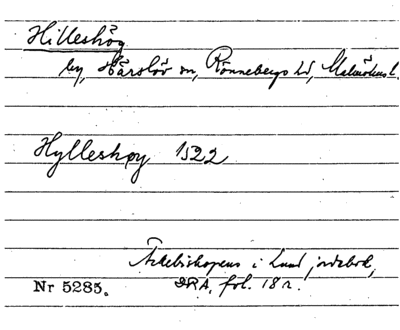 Hilleshög
by, Härslöv sn, Rönnebergs hd, Malmöhus l.
Hylleshøy 1522
Ärkebiskopens i Lund jordebok,
DRA, fol. 18 r.
Nr 5285.